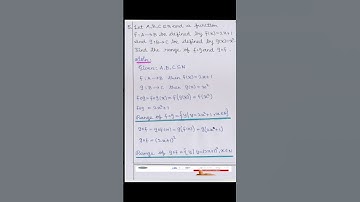 5. Let A,B,C ⊆ N and a function
f:A→B be defined by f(x)=2x+1
and g:B→C be defined by g(x)=x²
Find the range of fog and gof.
Soln:
Given: A,B,C ⊆ N
f:A→B then f(x)=2x+1
g:B→C then g(x)=x²
fog = fog(x) = f(g(x)) = f(x²)
fog = 2x²+1
Range of fog={y|y=2x²+1,x∈N}
gof = gof(x) = g(f(x)) = g(2x+1)
gof = (2x+1)²
Range of gof={y|y=(2x+1)²,x∈N